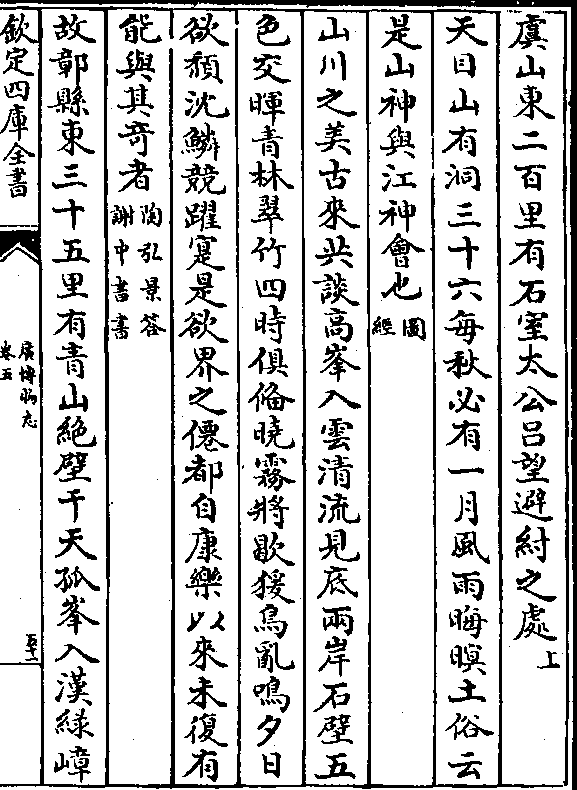 虞山東二百里有石室太公吕望避紂之處上
天目山有洞三十六每秋必有一月風雨晦暝土俗云
是山神與江神會也圖經
山川之美古來共談高峯入雲清流見底兩岸石壁五
色交暉青林翠竹四時俱俻曉霧將歇猨鳥亂鳴夕日
欲頹沈鱗競躍寔是欲界之僊都自康樂以來未復有
能與其竒者陶弘景答謝中書書
故鄣縣東三十五里有青山絶壁干天孤峯入漢緑嶂
欽定四庫全書
廣博物志
卷五